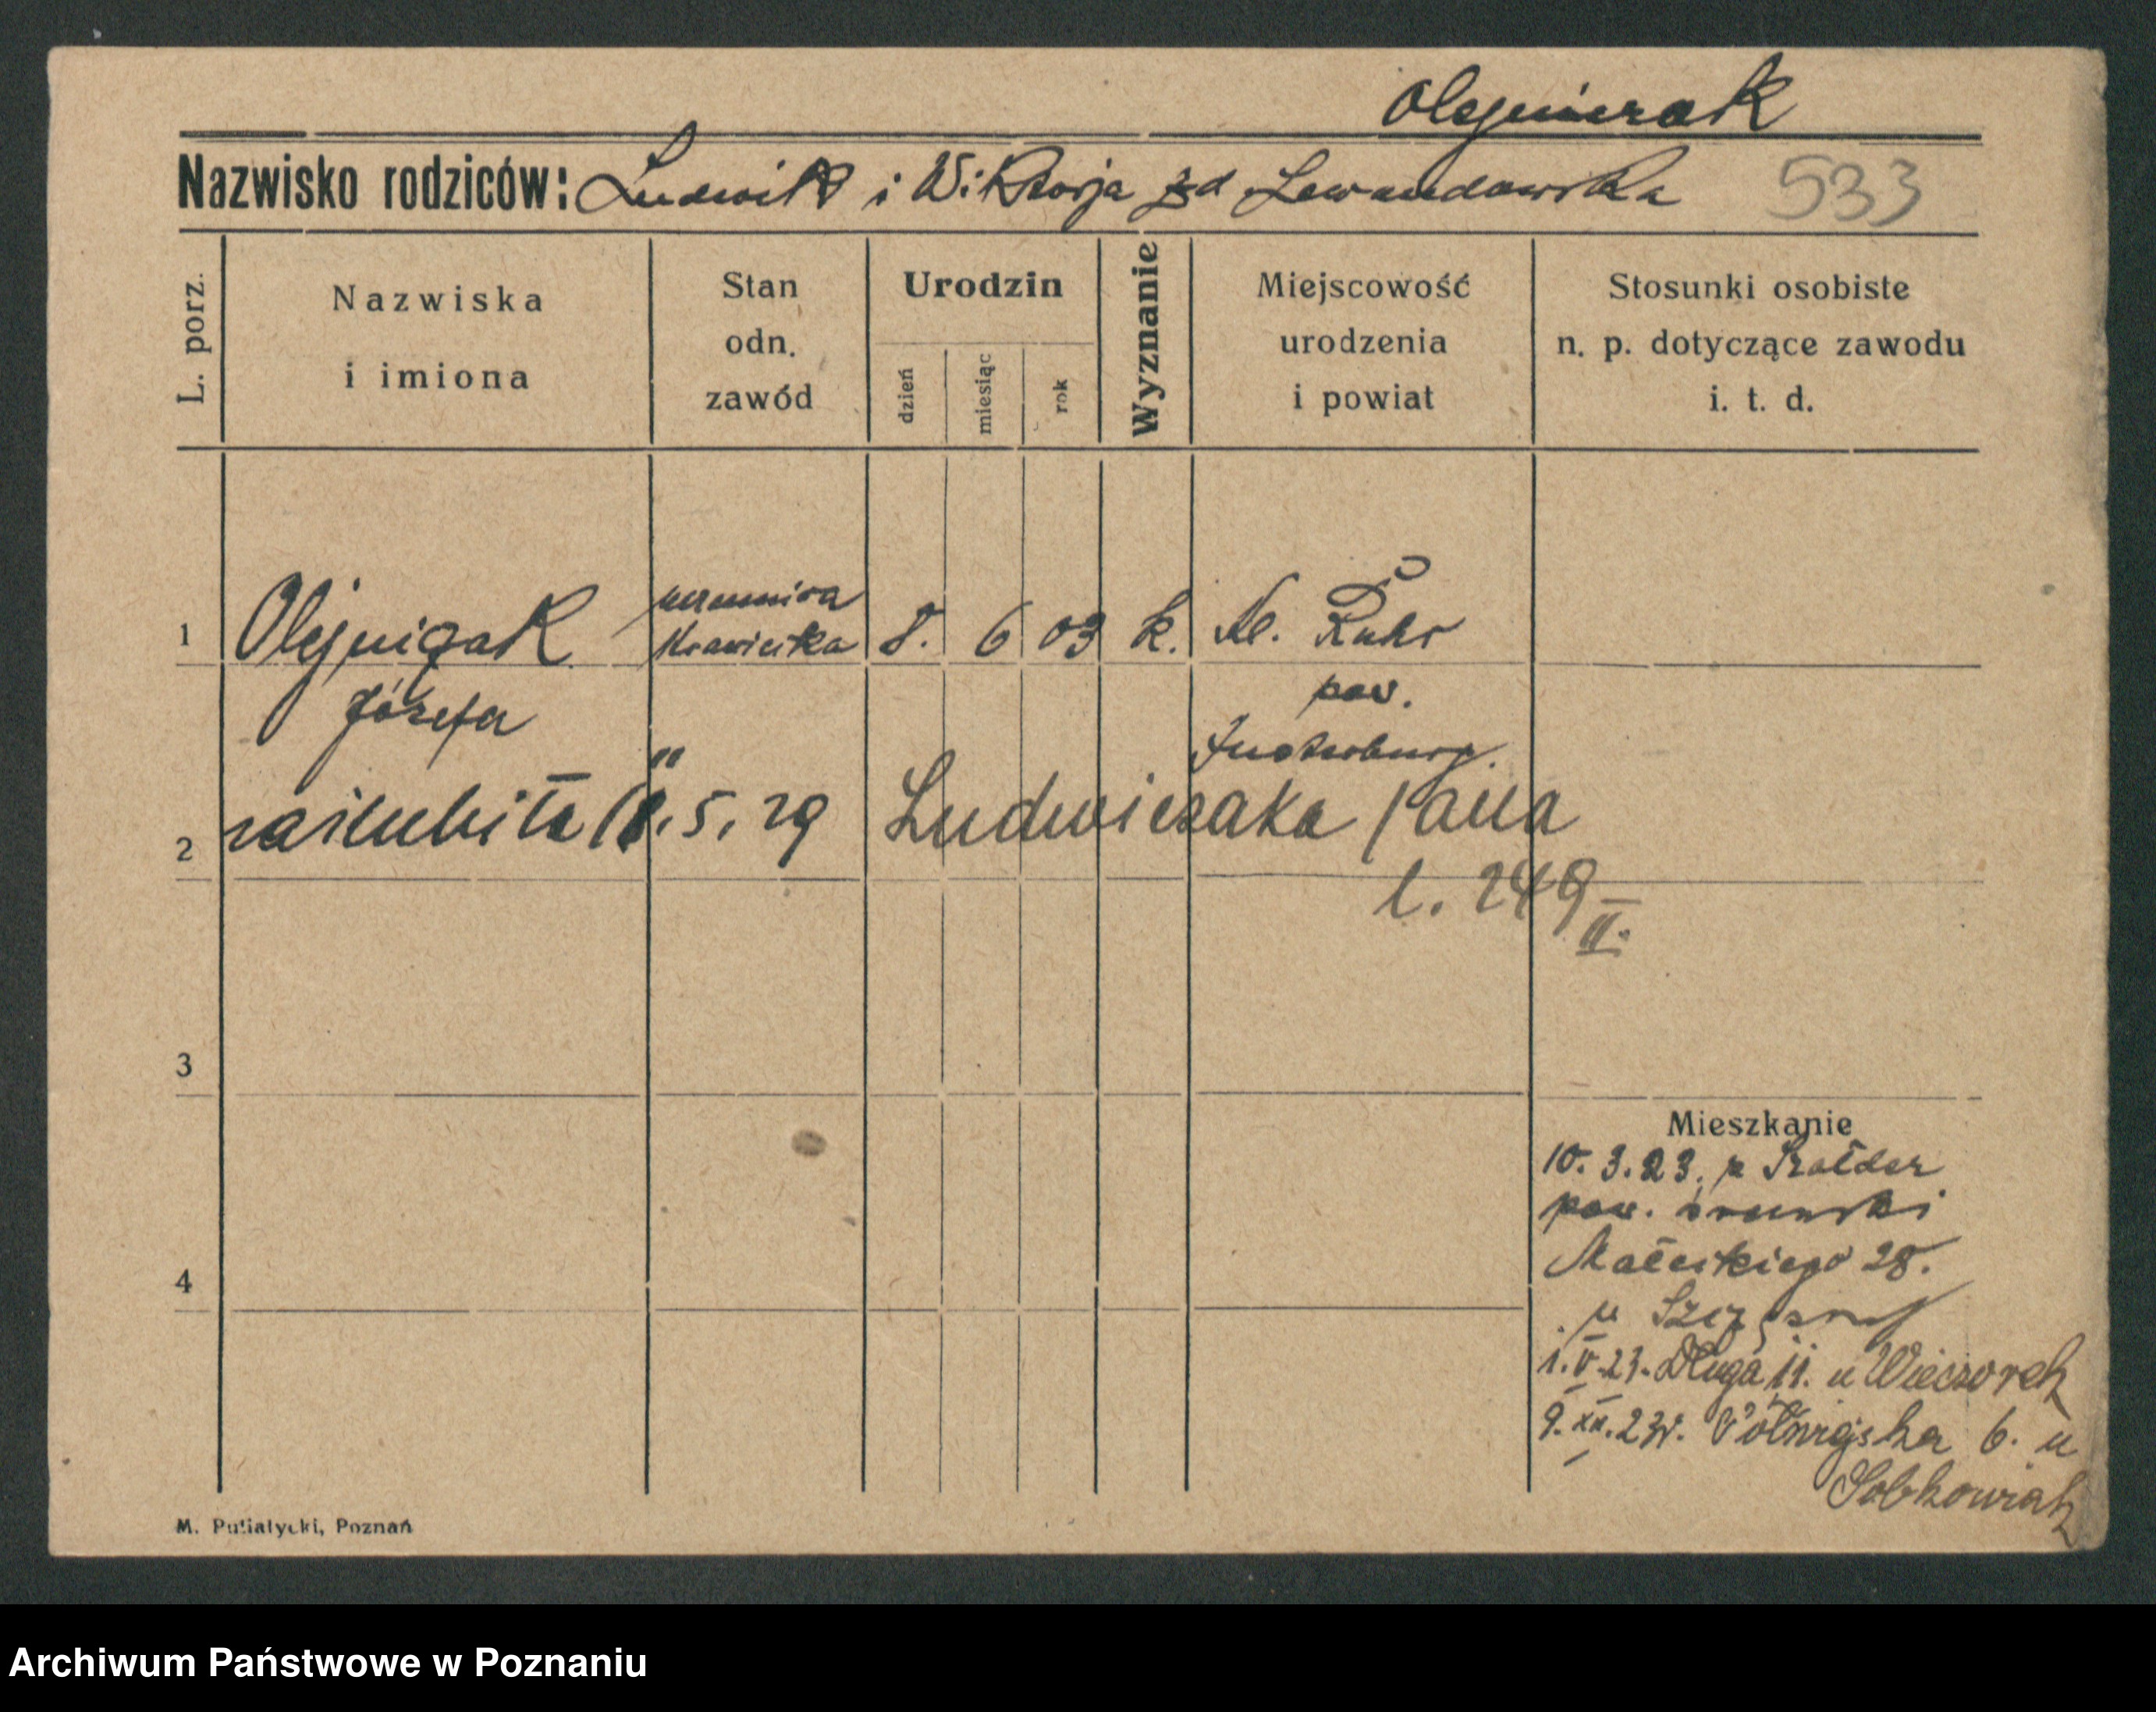 Olejniczak
Nazwisko rodziców: Ludwik i Wiktorja zd Lewandowska 533
L. porz.
Nazwiska i imiona
Stan odn. zawód
Urodzin
dzień miesiąc rok
Wyznanie
Miejscowość urodzenia i powiat
Stosunki osobiste n. p. dotyczące zawodu i. t. d.
1 Olejniczak Krawiecka 8. 6 03 k. Kl.
Józefa pow.
2 zaślubiła 5. 29 Ludwiczaka Jana
l. 249 II.
3
Mieszkanie
10. 3. 23. z
pow. śremski
4 Małeckiego 28.
u
1. V. 23. Długa 11. u Wieczorek
9. XII. 23r. Półwiejska 6. u
Sobkowiak
M. Putiatycki, Poznań
Archiwum Państwowe w Poznaniu